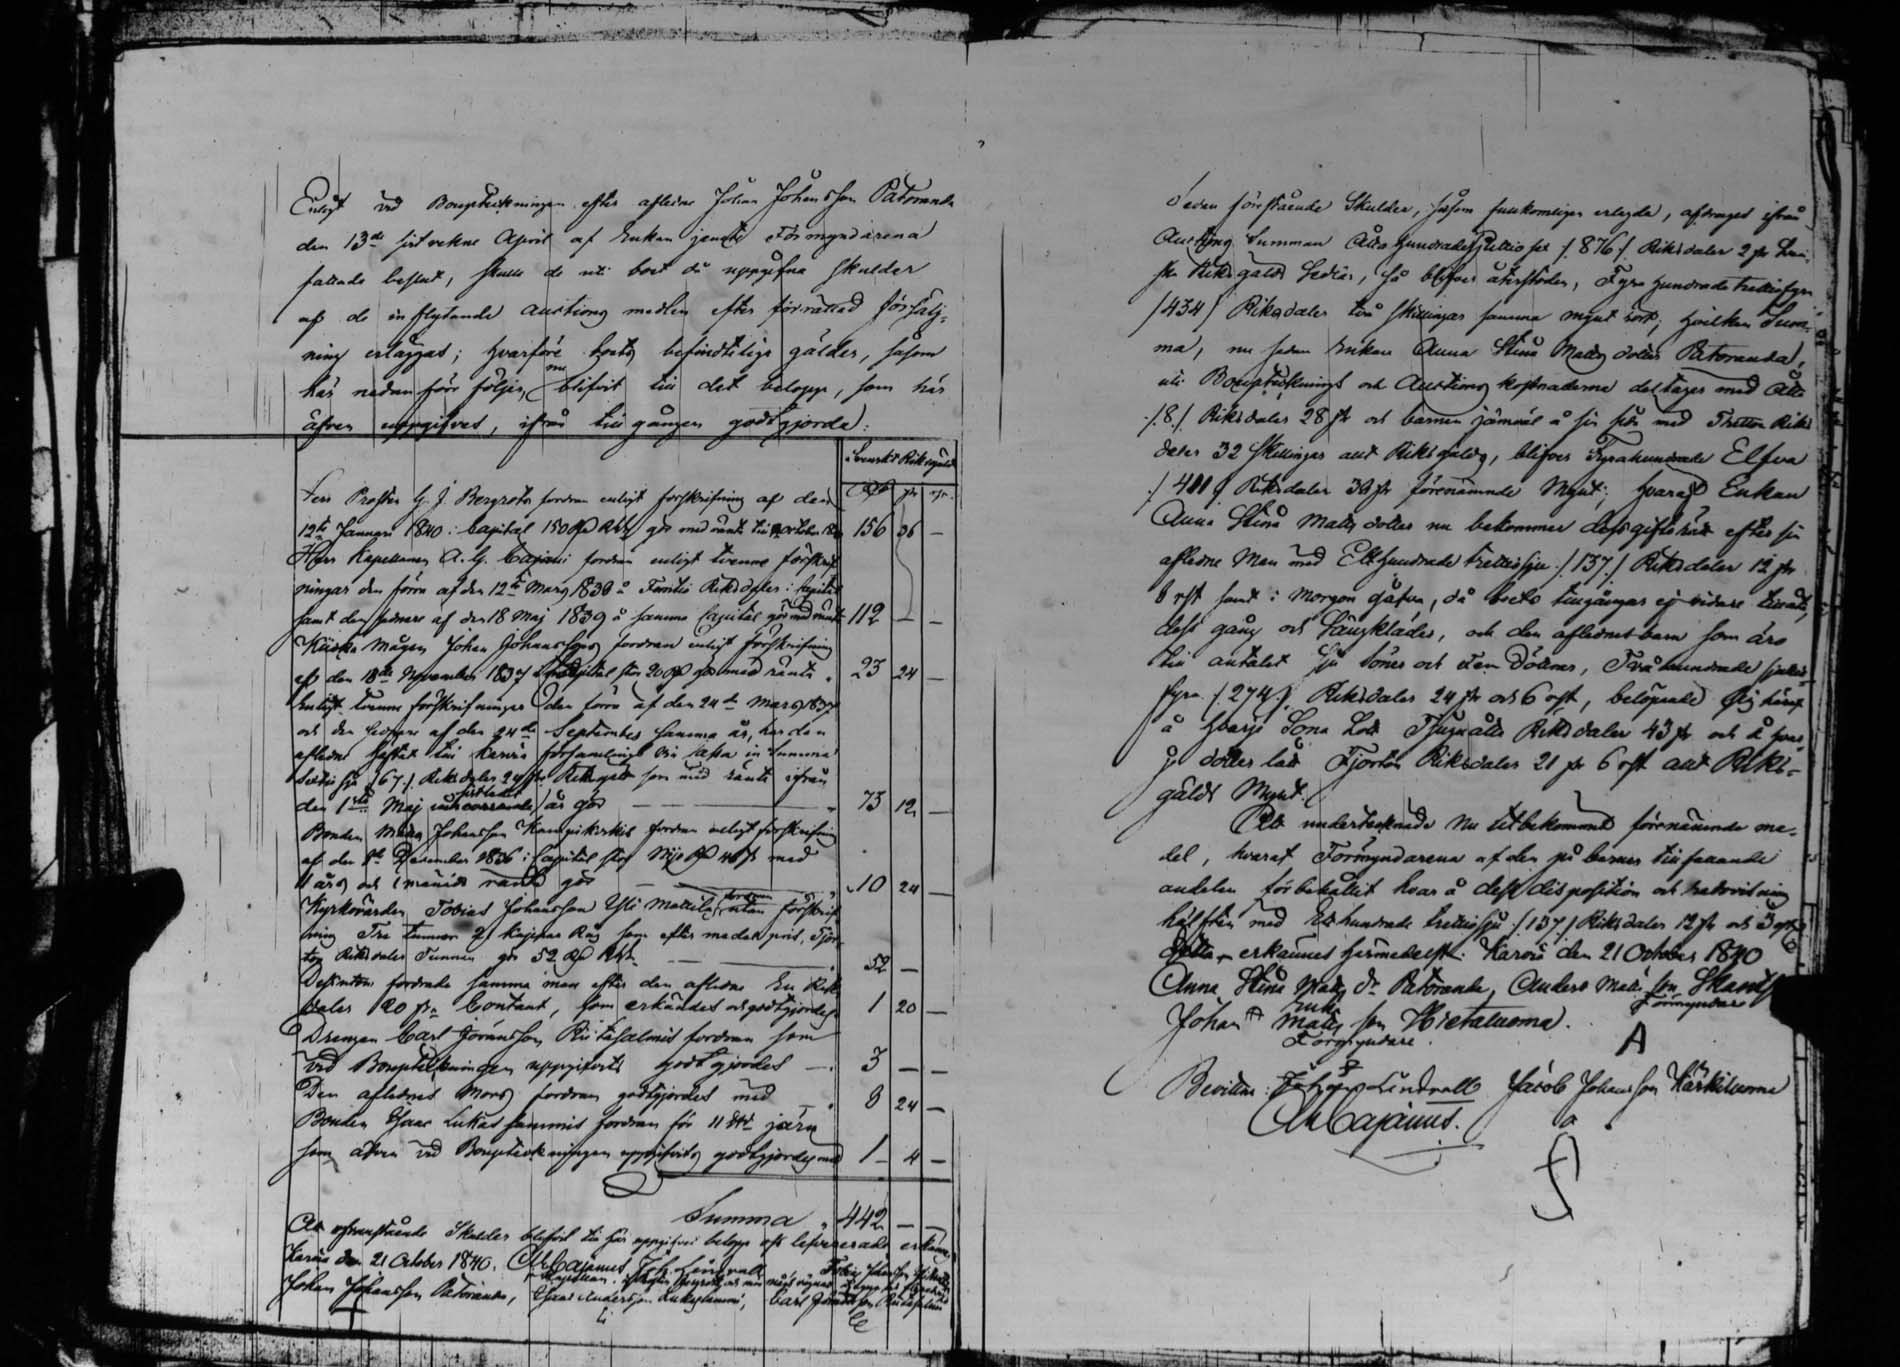 Enligt vid Bouptekningen efter aflidne Johan Johansson Patoranda
den 13de sistvekne April af Enkan jemte Förmyndarena
fattade beslut, skulle de uti boet då uppgifna skulder
af de inflytande auctions medlen efter förrättad försälj-
ning erläggas; hvarföre boets befindtelige gälder, såsom
här nedanföre följer, nu blifvit till det belopp, som här
äfven uppgifves, ifrån tillgången godtgjorda:
Svenskt Riksgäld
Herr Prosten G. J. Bergroths fordran enligt förskrifning af den
12te Januari 1840: Capital 150 Rd Rgds gör med ränta till October 156 36 —
Herr Kapellanen A. G. Cajani fordran enligt tvenne förskrif-
ningar den förra af den 12te Mars 1839 å Femtio Riksdaler: Capital
samt den sednare af den 18 Maj 1839 å samma Capital gör med ränta 112 — —
Mågen Johan Johanssons fordran enligt förskrifning
af den 18de November 1837 Capital stor 20 Rd gör med ränta 23 24 —
Enligt tvenne förskrifningar den förra af den 24de Mars 1837
och den sednare af den 24de September samma år, har den
aflidne häftat till Karvia församlings Cassa in Summa
Sextiosju /:67:/ Riksdaler 24 sk Riksgäld som med ränta ifrån
den 1sta Maj sistledet år gör — — 73 12 —
Bonden Matts Johansson Kampikoskis fordran enligt förskrifning
af den 8de December 1836: Capital stor Nijo Rd 40 sk med
år och månads ränta gör — 10 24 —
Kyrkovärden Tobias Johansson Yli Mattila fordran utan förskrif-
ning Tre tunnor 2 kappar Råg som efter medelpris, Fjor-
ton Riksdaler Tunnan gör 52 Rd Rgds — 52 —
Dessutom fordrade samma man efter den aflidne En Riks
daler 20 sk Contant, som erkändes och godtgjordes 1 20 —
Drengen Carl Göransson Riitasalmis fordran som
vid Bouptekningen uppgifvits godtgjordes — 3 — —
Den aflednes Mors fordran godtgjordes med — 8 24 —
Bonden Isaac Lukas fordran för 11 järn
som äfven vid Bouptekningen uppgifvits godtgjordes med 1 4 —
Summa " 442 — —
Att ofvanstående Skulder blifvit till här uppgifvet belopp oss levererade erkännes
Karvia den 21 October 1840. AG Cajanus Joh Lindvall Tobias Johansson
Kapellan
Johan Johansson Patoranda, Isaac Andersson, Carl Göransson Riitasalmi
Sedan förestående Skulder, såsom fullkomligen erlagde, afdragas ifrån
Auctions Summan Åtta hundrade Sjuttio sex /:876:/ Riksdaler 2 sk Sven-
ska Riksgälds Sedlar, så blifver återstoden, Fyra hundrade trettiofyra
/:434:/ Riksdaler två skillingar samma mynt sort; hvilken Sum-
ma, nu sedan Enkan Anna Stina Mattsdotter Patoranda,
uti Bouptecknings och Auctions kostnaderna deltagit med Åtta
/:8:/ Riksdaler 28 sk och barnen jämväl å sin sida med Tretton Riks
daler 32 skillingar allt Riksgälds, blifver Fyrahundrade Elfva
/:411:/ Riksdaler 39 sk förenämnde Mynt; hvaraf Enkan
Anna Stina Mattsdotter nu bekommer dess giftorätt efter sin
aflidne Man med Etthundrade trettiosju /:137:/ Riksdaler 12 sk
6 rst samt i Morgongåfva, då boets tillgångar ej vidare
dess gång och Sängkläder, och den aflednes barn som äro
till antalet Sju Söner och Fem Döttrar, Tvåhundrade Sjuttio-
fyra /:274:/ Riksdaler 24 sk och 6 rst, belöpande sig häraf
å hvarje Sona Lott Tjuguåtta Riksdaler 43 sk och å hvar-
je dotter lott Fjorton Riksdaler 21 sk 6 rst allt Riks-
gälds Mynt.
Att undertecknade nu utbekommit förenämnde me-
del, hvaraf Förmyndarena af den på barnen tillfallande
andelen förbehållit hvar å dess disposition och redovisning
hälften med Etthundrade trettiosju /:137:/ Riksdaler 12 sk och 3 rst
erkännes härmedelst. Karvia den 21 October 1840
Anna Stina Matts Dr Patoranda, Anders Mattsson Skantz
Enka Förmyndare
Johan Mattsson Hietaluoma.
Förmyndare. A
Bevittna: Johan Lindvall Jacob Johansson Kärkiluoma
AG Cajanus.